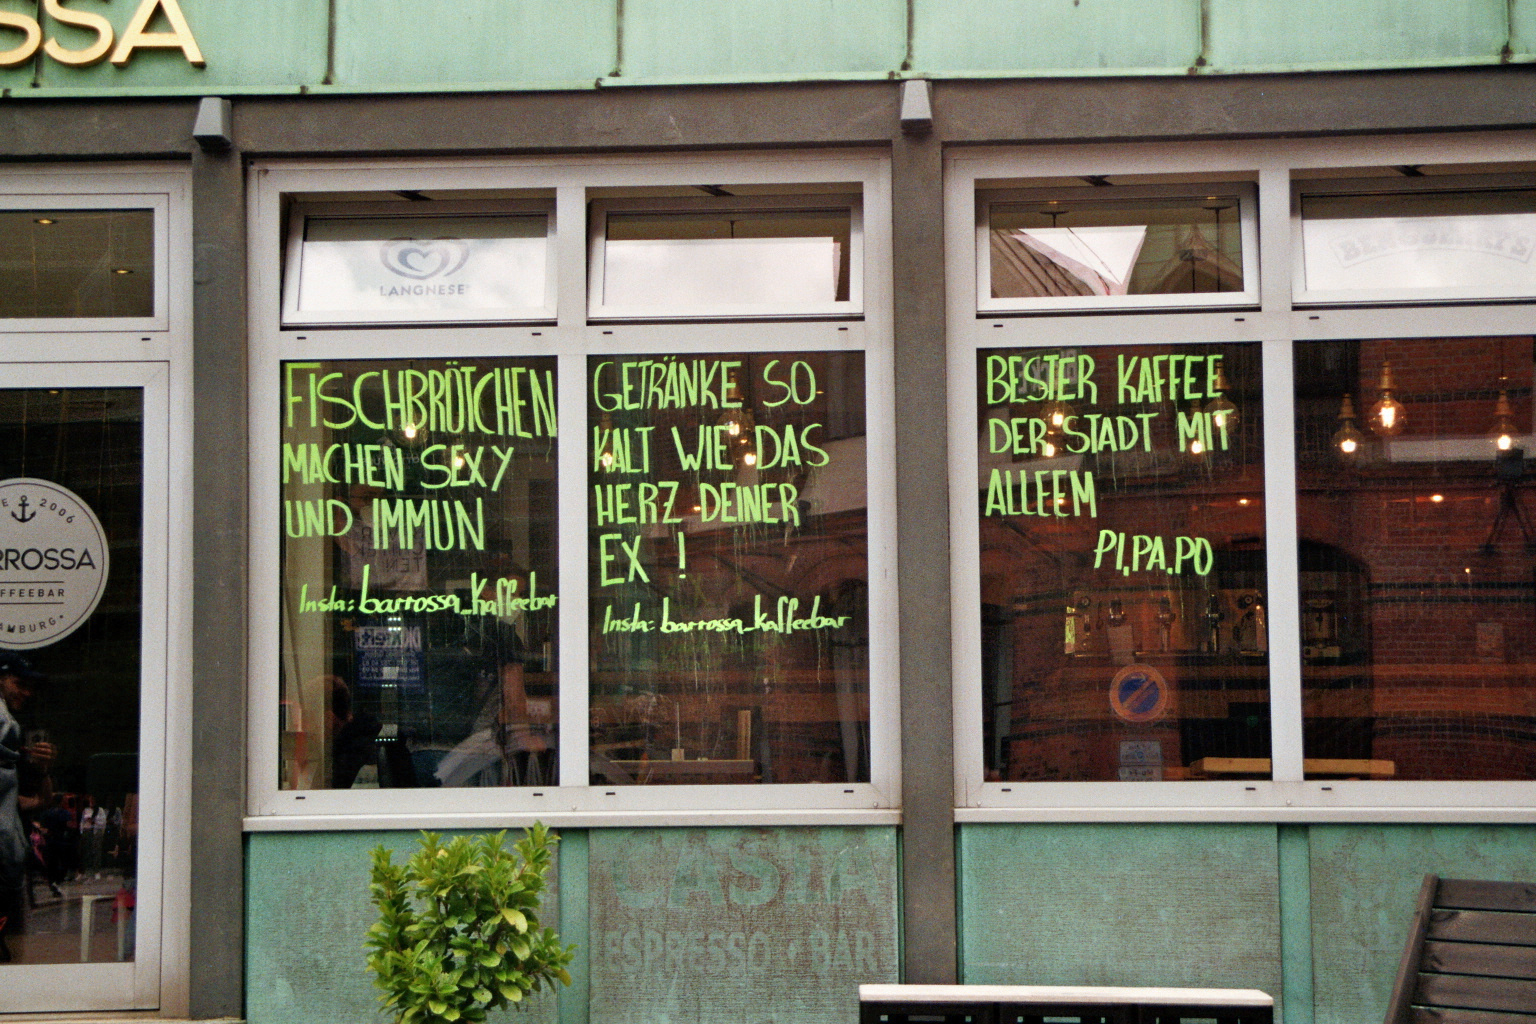 SSA
LANGNESE
FISCHBRÖTCHEN
MACHEN SEXY
UND IMMUN
Insta: barrossa_kaffeebar
GETRÄNKE SO
KALT WIE DAS
HERZ DEINER
EX !
Insta: barrossa_kaffeebar
BESTER KAFFEE
DER STADT MIT
ALLEEM
PI.PA.PO
E 2006
RROSSA
FFEEBAR
AMBURG
CASTA
ESPRESSO BAR